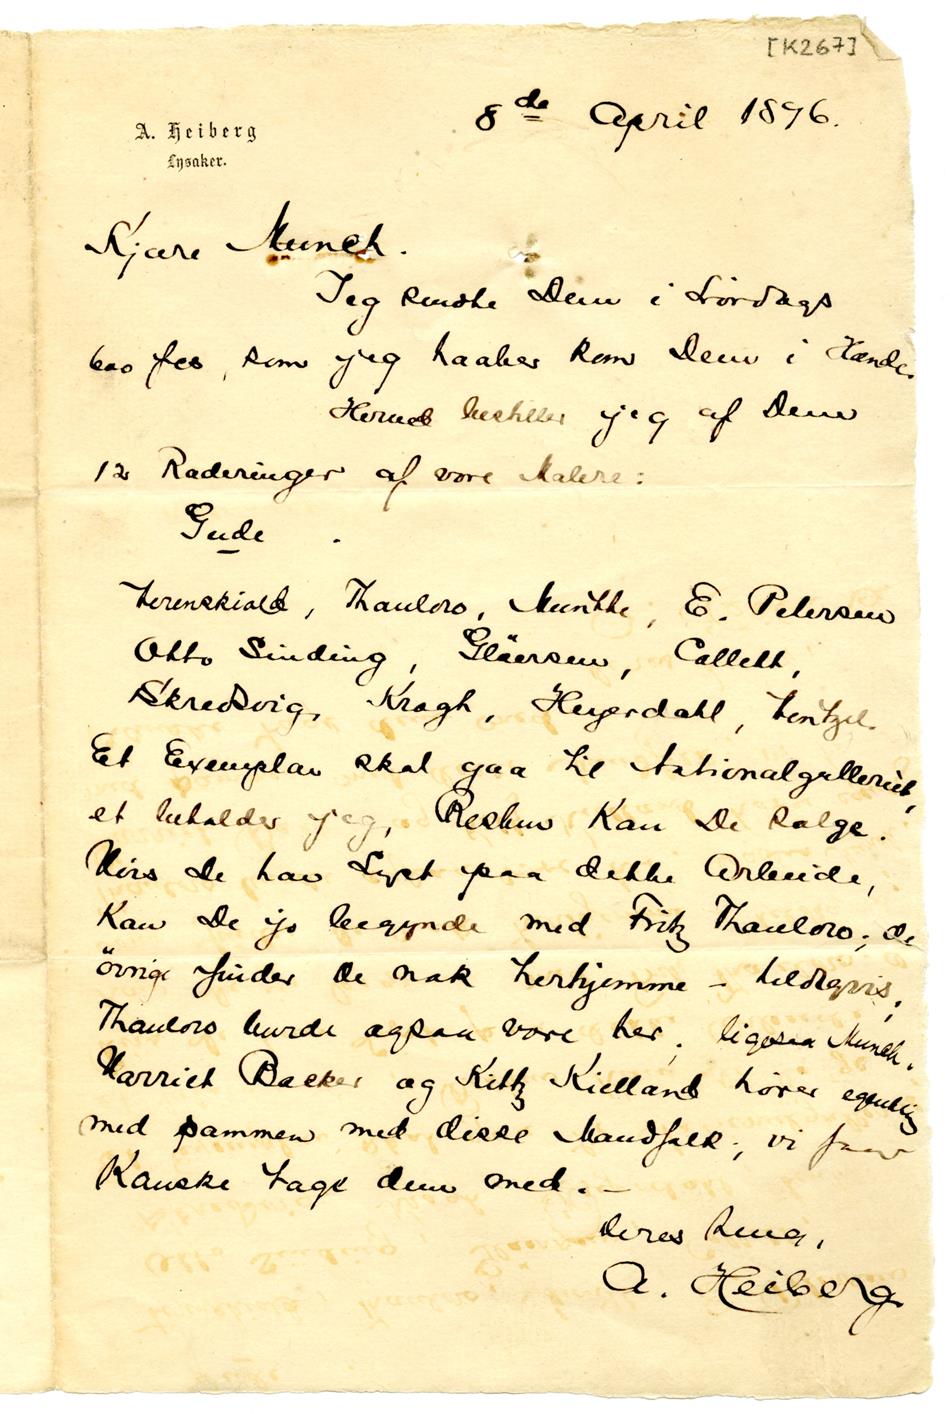 [K267]
8de April 1896.
A. Heiberg
Lysaker.
Kjære Munch.
Jeg sendte Dem i Lördags
600 fcs, som jeg haaber kom Dem i Hænde.
Herved bestiller jeg af Dem
12 Raderinger af vore Malere:
Gude
Werenskiold, Thaulow, Munthe, E. Petersen
Otto Sinding, Gløersen, Collett,
Skredsvig, Krogh, Heyerdahl, Wentzel.
Et Exemplar skal gaa til Nationalgalleriet,
et beholder jeg, Resten Kan De sælge.
Hvis De har Lyst paa dette Arbeide,
Kan De jo begynde med Fritz Thaulow; de
övrige finder De nok herhjemme – heldigvis,
Thaulow burde ogsaa være her, ligesaa Munch.
Harriet Backer og Kitty Kielland hører egentlig
med sammen med disse Mandfolk; vi faar
Kanske tage dem med. –
Deres heng.
A. Heiberg